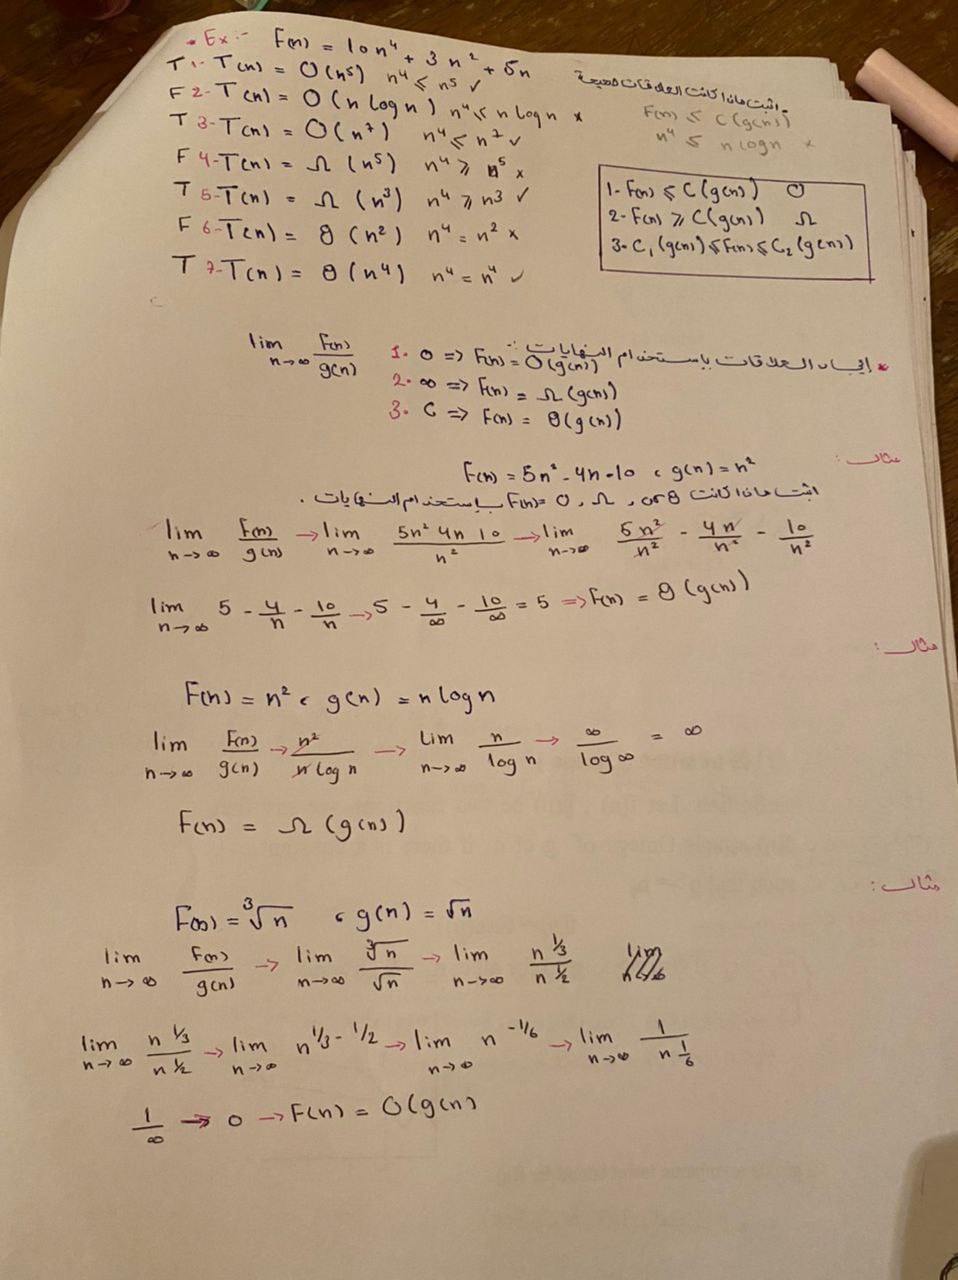 • Ex:- F(n) = 10n⁴ + 3n² + 5n
- اثبت ماذا كانت العلاقات صحيحة
T 1- T(n) = O(n⁵) n⁴ ≤ n⁵ ✓
F 2- T(n) = O(n log n) n⁴ ≤ n log n ×
F(n) ≤ C(g(n))
n⁴ ≤ n log n ×
T 3- T(n) = O(n⁷) n⁴ ≤ n⁷ ✓
F 4- T(n) = Ω(n⁵) n⁴ ≥ n⁵ ×
T 5- T(n) = Ω(n³) n⁴ ≥ n³ ✓
F 6- T(n) = θ(n²) n⁴ = n² ×
T 7- T(n) = θ(n⁴) n⁴ = n⁴ ✓
1- F(n) ≤ C(g(n)) O
2- F(n) ≥ C(g(n)) Ω
3- C₁(g(n)) ≤ F(n) ≤ C₂(g(n))
* إيجاد العلاقات بإستخدام النهايات :-
lim n→∞ F(n)/g(n) 1. 0 => F(n) = O(g(n))
2. ∞ => F(n) = Ω(g(n))
3. C => F(n) = θ(g(n))
مثال :
F(n) = 5n² - 4n - 10 ، g(n) = n²
اثبت ماذا كانت F(n) = O, Ω, or θ بإستخدام النهايات .
lim n→∞ F(n)/g(n) → lim n→∞ 5n² 4n 10/n² → lim n→∞ 5n²/n² - 4n/n² - 10/n²
lim n→∞ 5 - 4/n - 10/n → 5 - 4/∞ - 10/∞ = 5 => F(n) = θ(g(n))
مثال :
F(n) = n² ، g(n) = n log n
lim n→∞ F(n)/g(n) → n²/n log n → Lim n→∞ n/log n → ∞/log ∞ = ∞
F(n) = Ω(g(n))
مثال :
F(n) = ³√n ، g(n) = √n
lim n→∞ F(n)/g(n) → lim n→∞ ³√n/√n → lim n→∞ n^1/3 / n^1/2
lim n→∞ n^1/3 / n^1/2 → lim n→∞ n^1/3 - 1/2 → lim n→∞ n^-1/6 → lim n→∞ 1/n^1/6
1/∞ → 0 → F(n) = O(g(n)